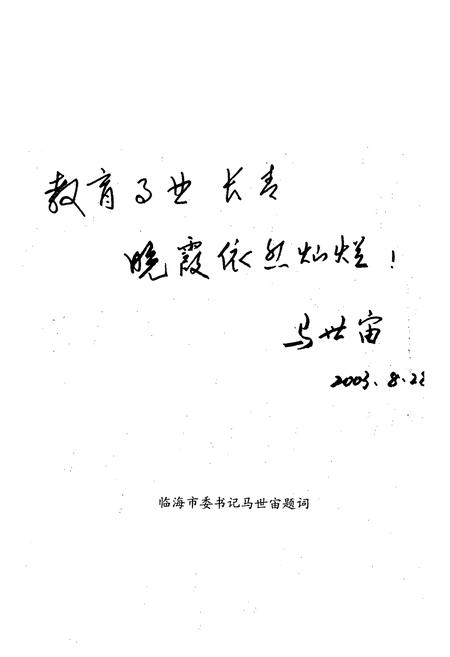 教育事业长青
晚霞依然灿烂!
马世宙
2003.8.22
临海市委书记马世宙题词